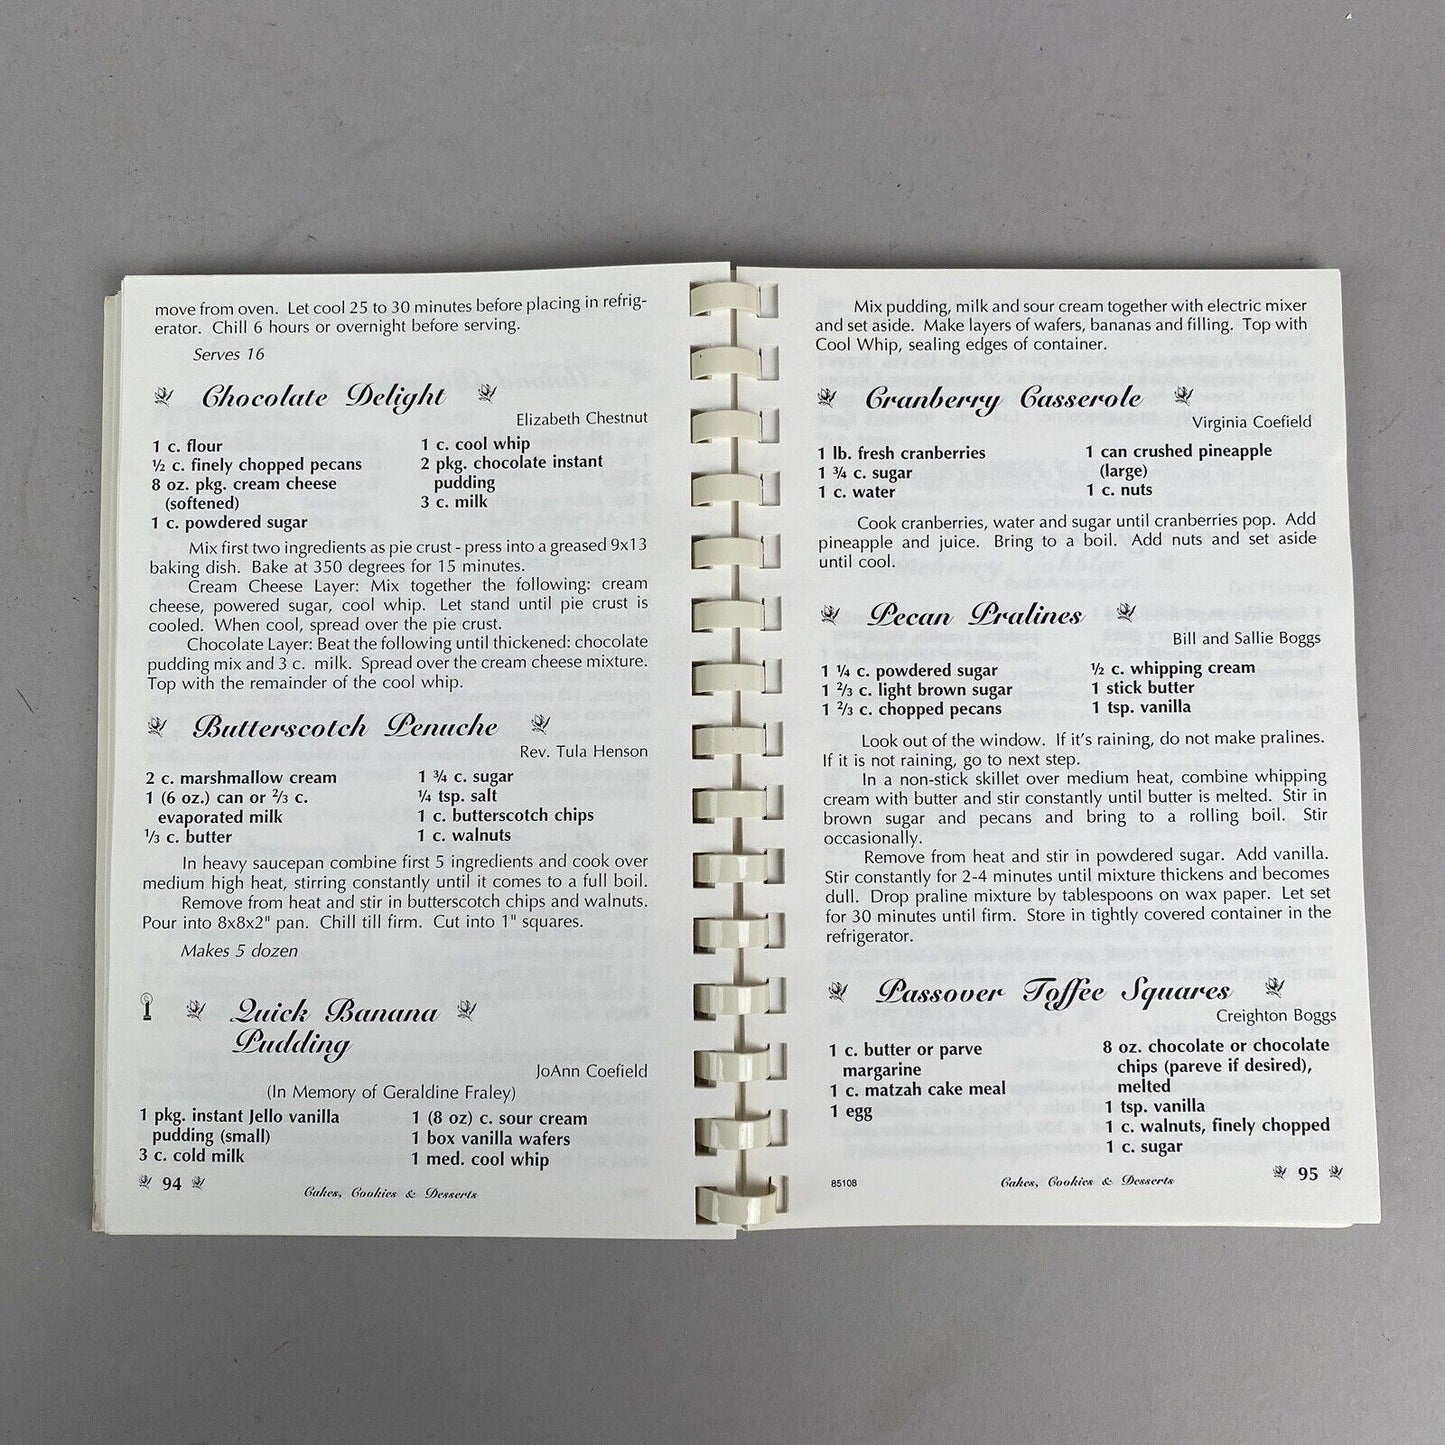 move from oven. Let cool 25 to 30 minutes before placing in refrig-
erator. Chill 6 hours or overnight before serving.
Serves 16
Chocolate Delight
Elizabeth Chestnut
1 c. flour
½ c. finely chopped pecans
8 oz. pkg. cream cheese
(softened)
1 c. powdered sugar
1 c. cool whip
2 pkg. chocolate instant
pudding
3 c. milk
Mix first two ingredients as pie crust - press into a greased 9x13
baking dish. Bake at 350 degrees for 15 minutes.
Cream Cheese Layer: Mix together the following: cream
cheese, powered sugar, cool whip. Let stand until pie crust is
cooled. When cool, spread over the pie crust.
Chocolate Layer: Beat the following until thickened: chocolate
pudding mix and 3 c. milk. Spread over the cream cheese mixture.
Top with the remainder of the cool whip.
Butterscotch Penuche
Rev. Tula Henson
2 c. marshmallow cream
1 (6 oz.) can or ⅔ c.
evaporated milk
⅓ c. butter
1 ¾ c. sugar
¼ tsp. salt
1 c. butterscotch chips
1 c. walnuts
In heavy saucepan combine first 5 ingredients and cook over
medium high heat, stirring constantly until it comes to a full boil.
Remove from heat and stir in butterscotch chips and walnuts.
Pour into 8x8x2" pan. Chill till firm. Cut into 1" squares.
Makes 5 dozen
Quick Banana
Pudding
JoAnn Coefield
(In Memory of Geraldine Fraley)
1 pkg. instant Jello vanilla
pudding (small)
3 c. cold milk
1 (8 oz) c. sour cream
1 box vanilla wafers
1 med. cool whip
94
Cakes, Cookies & Desserts
Mix pudding, milk and sour cream together with electric mixer
and set aside. Make layers of wafers, bananas and filling. Top with
Cool Whip, sealing edges of container.
Cranberry Casserole
Virginia Coefield
1 lb. fresh cranberries
1 ¾ c. sugar
1 c. water
1 can crushed pineapple
(large)
1 c. nuts
Cook cranberries, water and sugar until cranberries pop. Add
pineapple and juice. Bring to a boil. Add nuts and set aside
until cool.
Pecan Pralines
Bill and Sallie Boggs
1 ¼ c. powdered sugar
1 ⅔ c. light brown sugar
1 ⅔ c. chopped pecans
½ c. whipping cream
1 stick butter
1 tsp. vanilla
Look out of the window. If it's raining, do not make pralines.
If it is not raining, go to next step.
In a non-stick skillet over medium heat, combine whipping
cream with butter and stir constantly until butter is melted. Stir in
brown sugar and pecans and bring to a rolling boil. Stir
occasionally.
Remove from heat and stir in powdered sugar. Add vanilla.
Stir constantly for 2-4 minutes until mixture thickens and becomes
dull. Drop praline mixture by tablespoons on wax paper. Let set
for 30 minutes until firm. Store in tightly covered container in the
refrigerator.
Passover Toffee Squares
Creighton Boggs
1 c. butter or parve
margarine
1 c. matzah cake meal
1 egg
8 oz. chocolate or chocolate
chips (pareve if desired),
melted
1 tsp. vanilla
1 c. walnuts, finely chopped
1 c. sugar
85108
Cakes, Cookies & Desserts
95